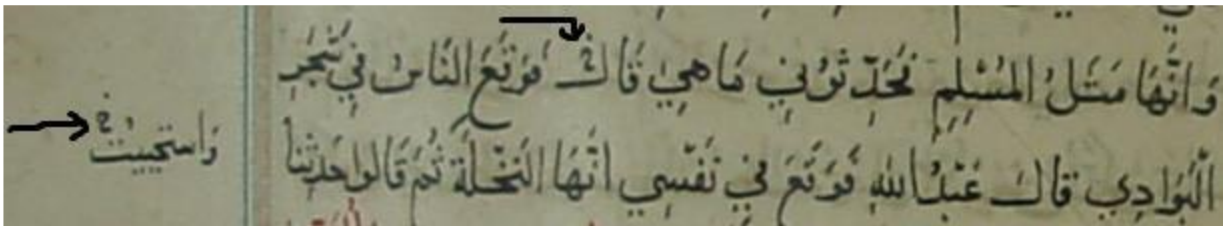 وَانَّهَا مَثَلُ المُسْلِمِ فَحَدِّثوُنِي مَا هِيَ قَالَ فَوَقَعَ النَّاسُ فِي شَجَرِ
الْبَوَادِي قَالَ عَبْدُ اللهِ فَوَقَعَ فِي نَفْسِي انَّهَا النَّخْلَةُ ثُمَّ قَالوُا حَدِّثْنَا
وَاستحييتُ